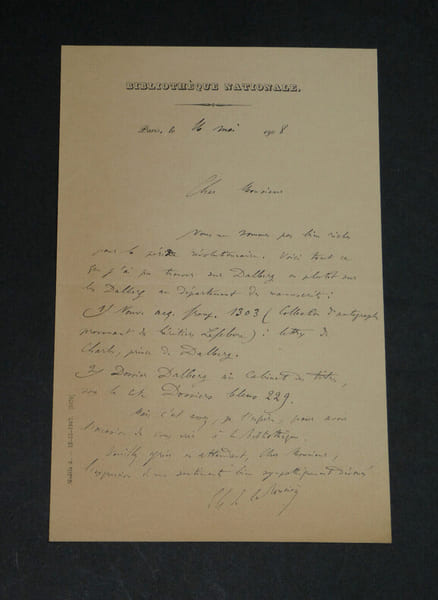 BIBLIOTHÈQUE NATIONALE.
Paris, le 16 mai 1908
Cher Monsieur
Nous ne sommes pas bien riche
pour la période révolutionnaire. Voici tout ce
que j'ai pu trouver sur Dalberg ou plutôt sur
les Dalberg au département des manuscrits :
1) Nouv. acq. franç. 1303 (Collection d'autographes
provenant de Lefebvre) : lettre de
Charles, prince de Dalberg.
2) Dossier Dalberg au Cabinet des titres,
sous la cote Dossiers bleus 229.
Mais c'est assez, je l'espère, pour avoir
l'occasion de vous voir à la Bibliothèque.
Veuillez agréer en attendant, Cher Monsieur,
l'expression de mes sentiments bien sympathiquement dévoués
Ch. de la Roncière